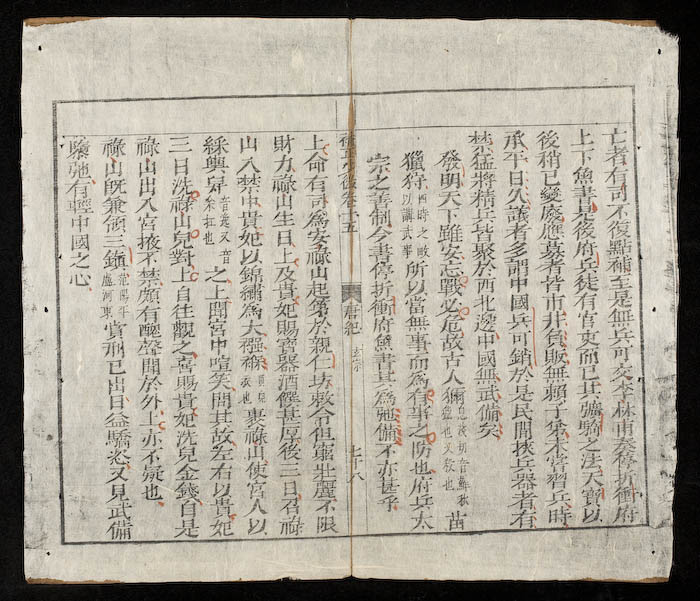 亡者有司不復點補至是無兵可交李林甫奏停折衝府
上下魚書是後府兵徒有官吏而已其彍騎之法天寶以
後稍已變廢應募者皆市井負販無賴子弟未嘗習兵時
承平日久議者多謂中國兵可銷於是民間挾兵器者有
禁猛將精兵皆聚於西北邊中國無武備矣
發明天下雖安忘戰必危故古人獮息淺切音蘚秋獵也又殺也苗
獵狩四時之畋以講武事所以當無事而為有事之防也府兵太
宗之善制今書停折衝府魚書其為弛備不亦甚乎
卷十五 唐紀 玄宗 七十八
上命有司為安祿山起第於親仁坊敕令但窮壯麗不限
財力祿山生日上及貴妃賜寶器酒饌甚厚後三日召祿
山入禁中貴妃以錦繡為大襁褓裹祿山使宮人以
綵輿舁之上聞宮中喧笑問其故左右以貴妃
三日洗祿山兒對上自往觀之喜賜貴妃洗兒金錢自是
祿山出入宮掖不禁頗有醜聲聞於外上亦不疑也
祿山既兼領三鎮范陽平盧河東賞刑已出日益驕恣又見武備
墮弛有輕中國之心